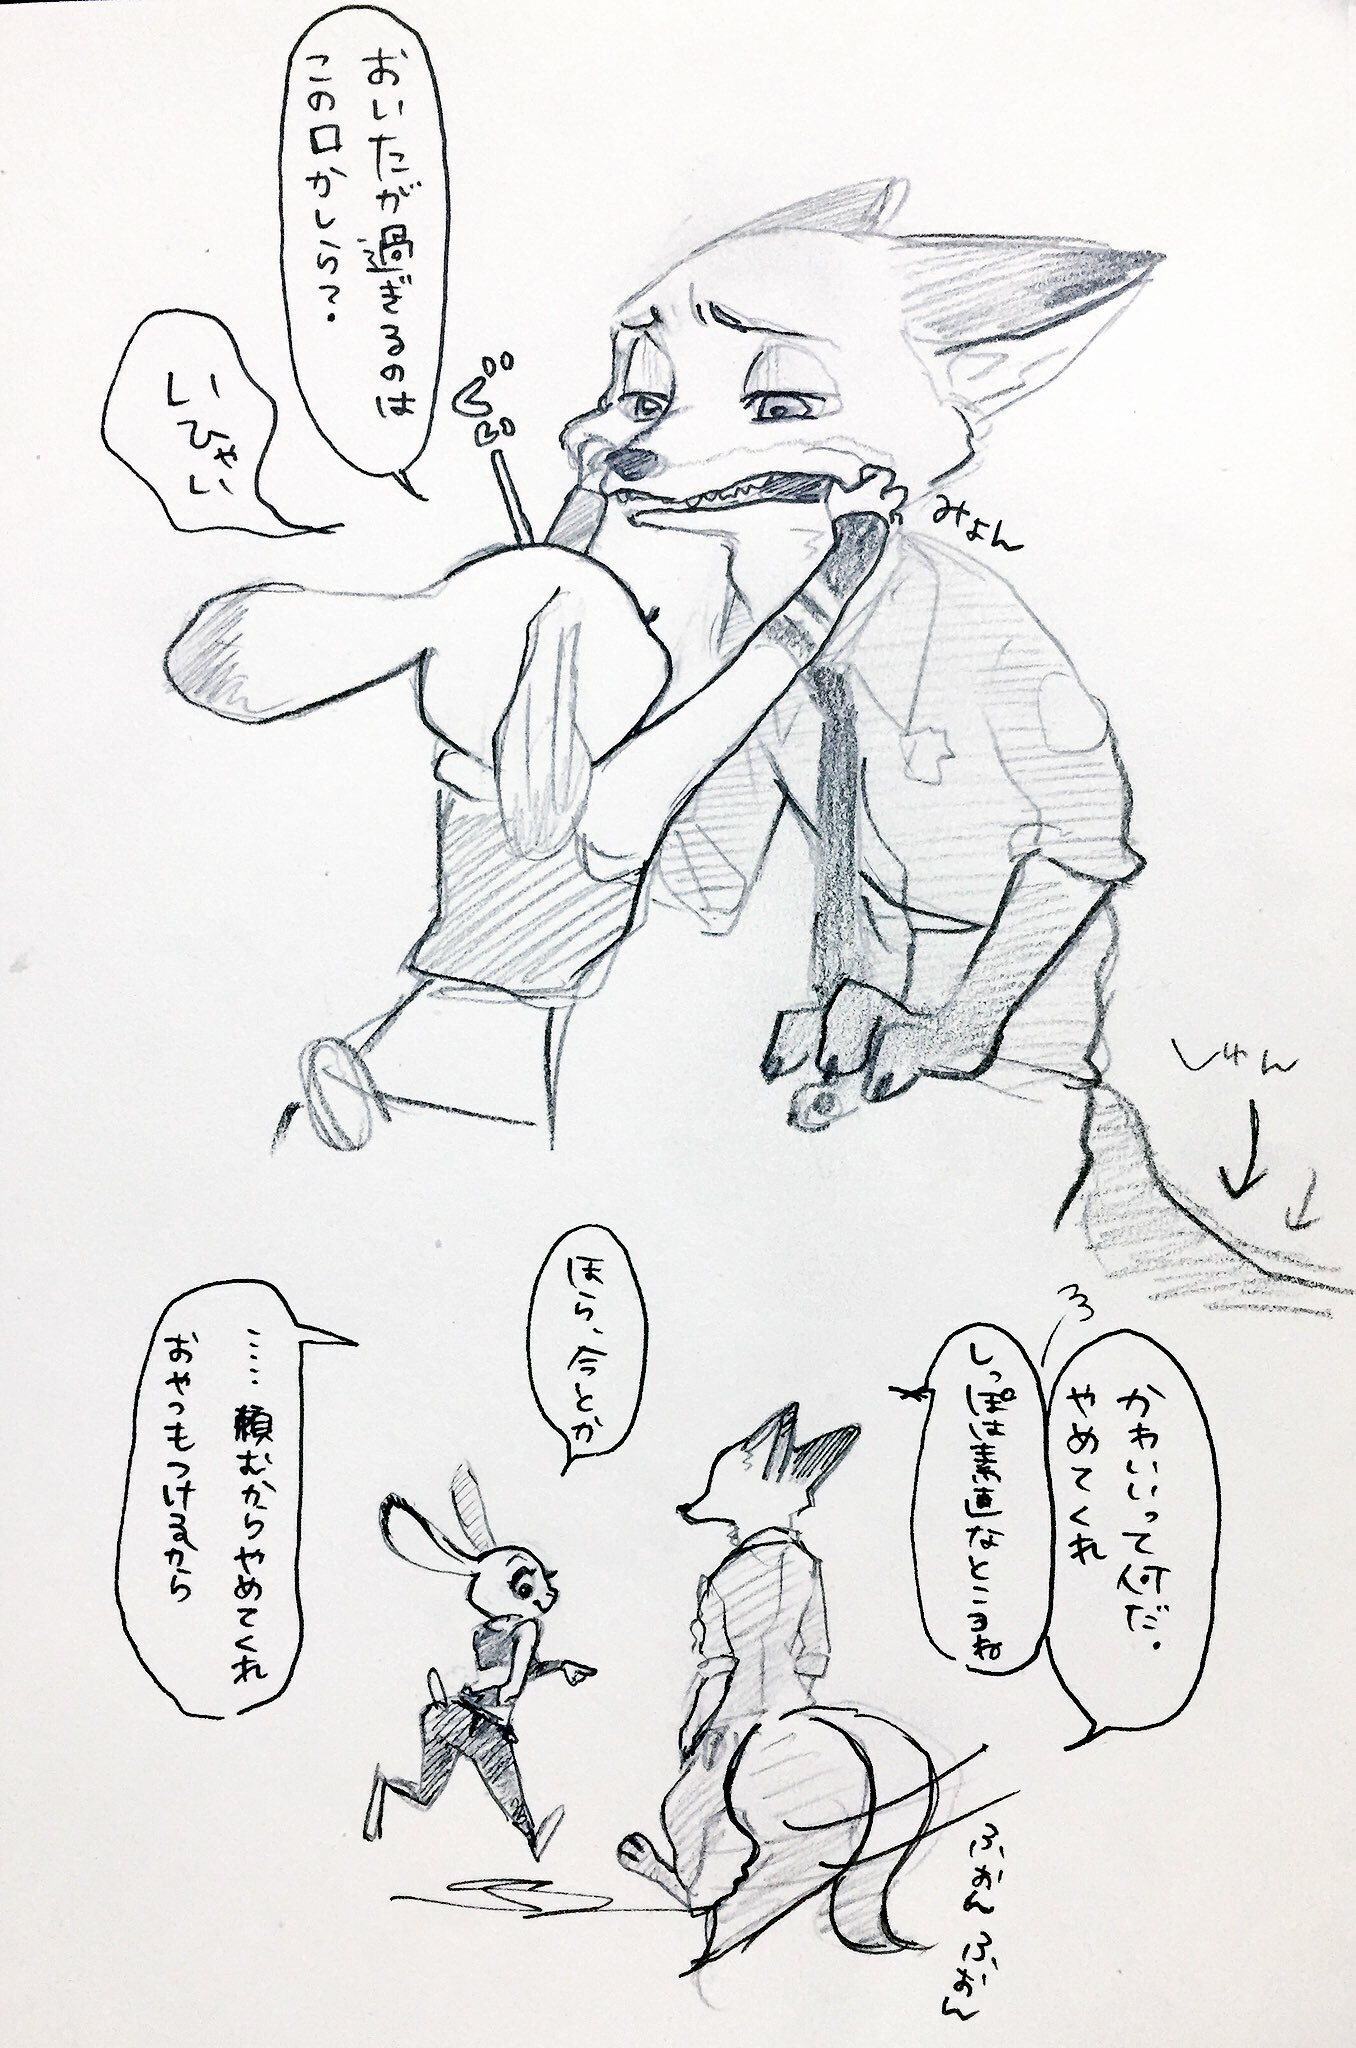 おいたが過ぎるのは
この口かしら?
いひゃい
みょん
しゅん
かわいいって何だ。
やめてくれ
しっぽは素直なところね
ほら、今とか
……頼むからやめてくれ
おやつもつけるから
ふぉんふぉん